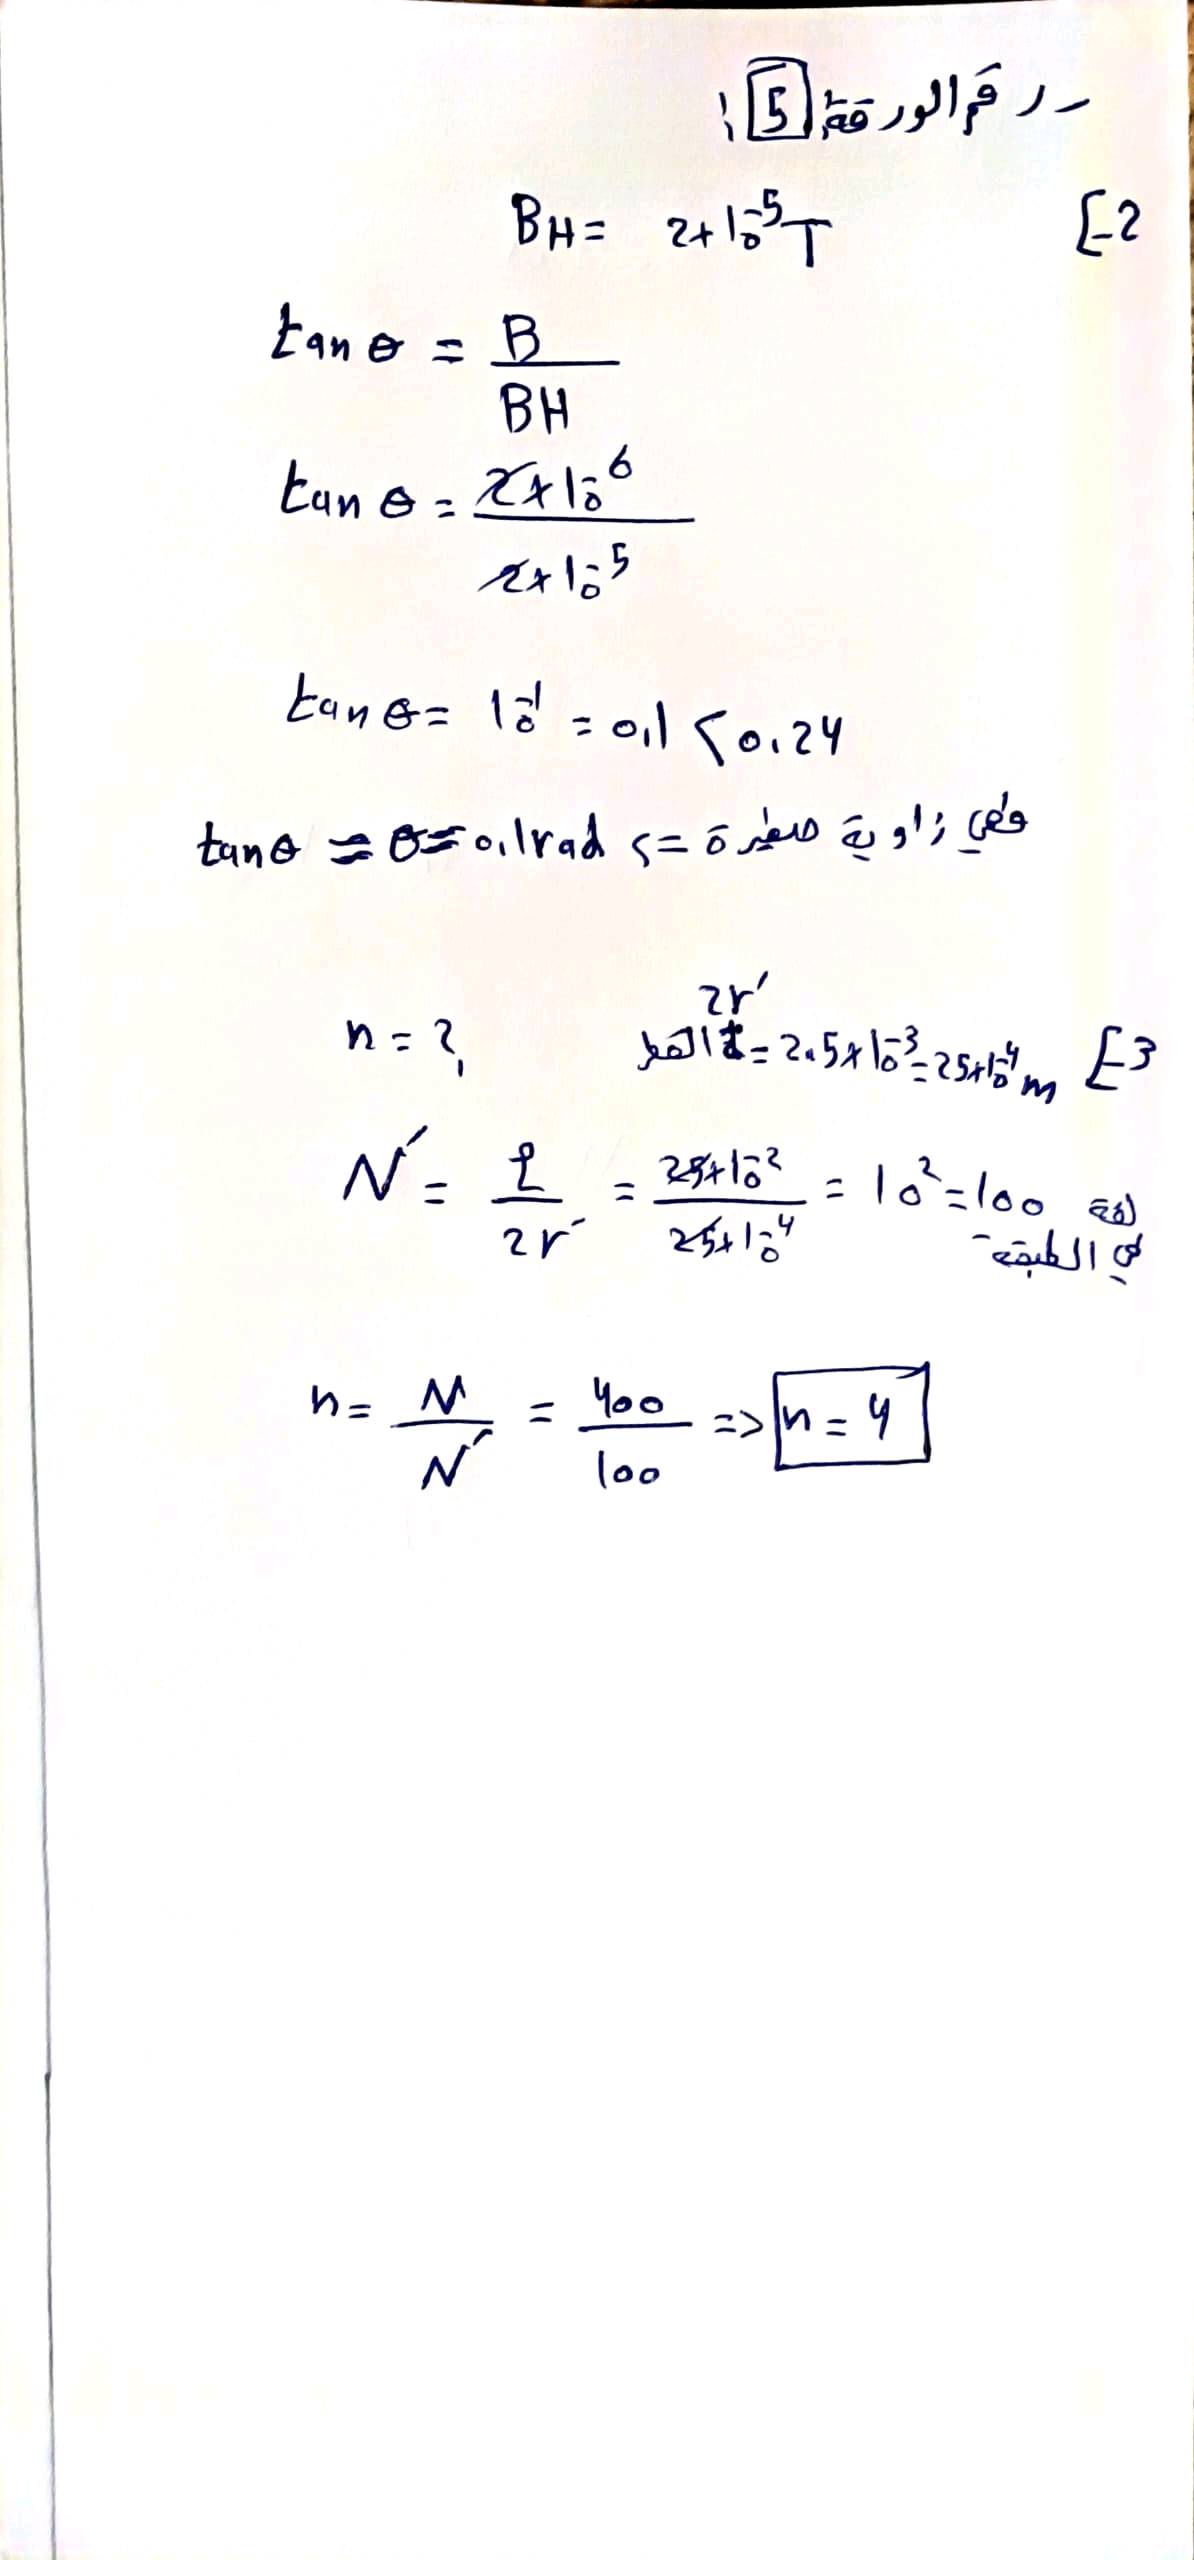 رقم الورقة 5:
2] BH = 2×10⁻⁵ T
tan θ = B / BH
tan θ = 2×10⁻⁶ / 2×10⁻⁵
tan θ = 10⁻¹ = 0,1 < 0,24
وهي زاوية صغيرة => tan θ ≈ θ = 0,1 rad
2r'
3] القطر = 2.5×10⁻³ = 25×10⁻⁴ m n = ?
N' = ℓ / 2r' = 25×10⁻² / 25×10⁻⁴ = 10² = 100 لفة
في الطبقة
n = N / N' = 400 / 100 => n = 4